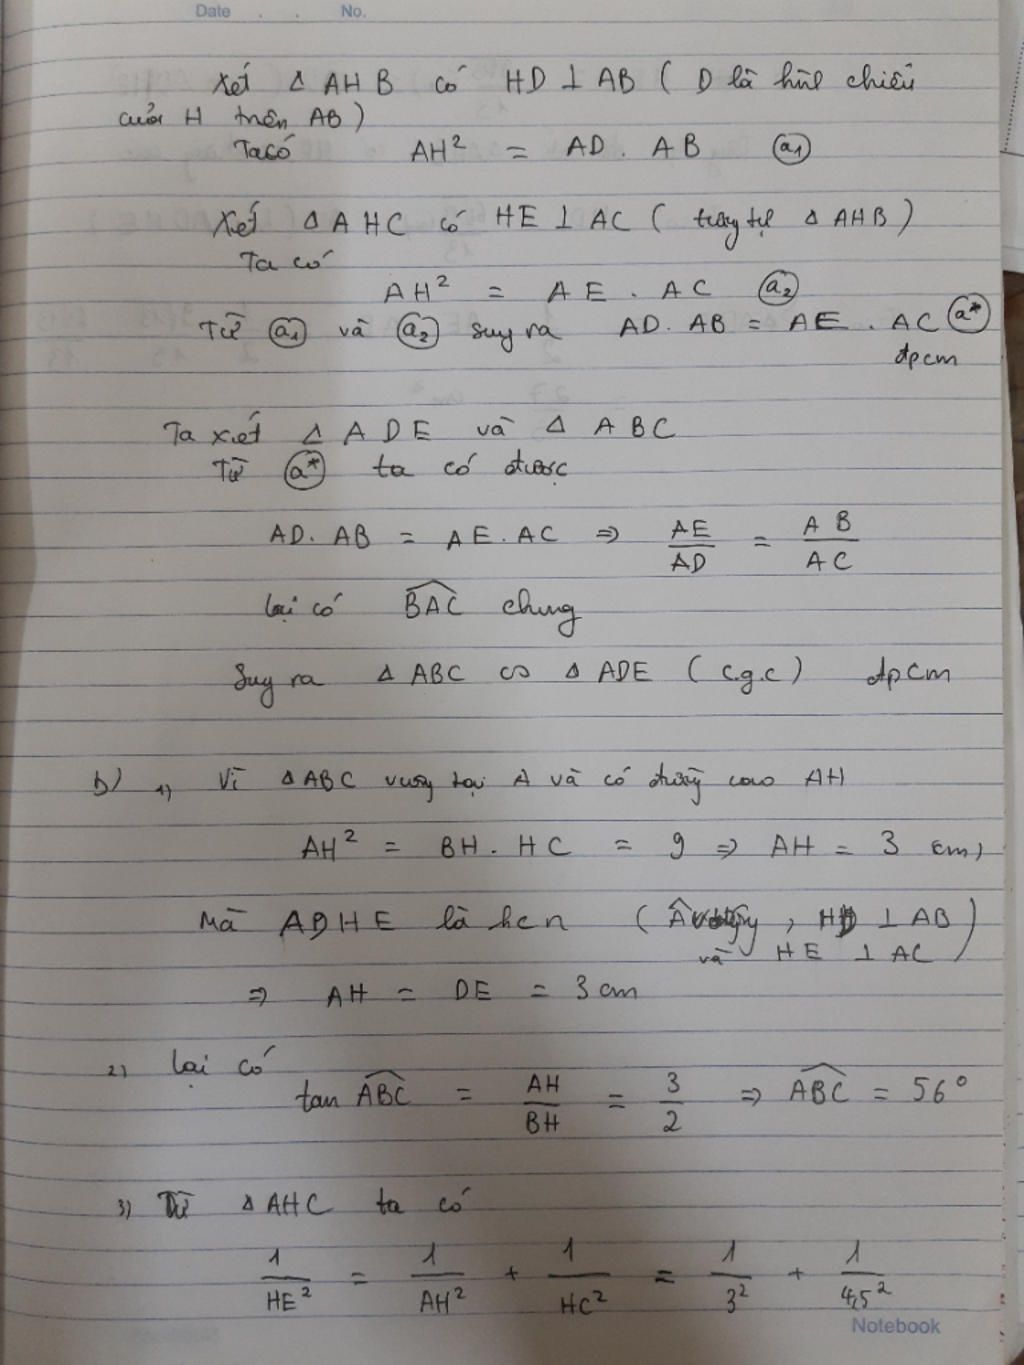 Date . . No.
Xét Δ AHB có HD ⊥ AB ( D là hình chiếu
của H trên AB )
Ta có AH² = AD . AB (a1)
Xét Δ AHC có HE ⊥ AC ( tương tự Δ AHB )
Ta có
AH² = AE . AC (a2)
Từ (a1) và (a2) suy ra AD . AB = AE . AC (a*)
đpcm
Ta xét Δ ADE và Δ ABC
Từ (a*) ta có được
AD. AB = AE. AC ⇒ AE/AD = AB/AC
lại có BAC chung
Suy ra Δ ABC ∽ Δ ADE ( c.g.c ) đpcm
b) 1) Vì Δ ABC vuông tại A và có đường cao AH
AH² = BH . HC = 9 ⇒ AH = 3 cm)
Mà ADHE là hcn ( Â vuông , HD ⊥ AB
và HE ⊥ AC )
⇒ AH = DE = 3 cm
2) lại có
tan ABC = AH/BH = 3/2 ⇒ ABC = 56°
3) Từ Δ AHC ta có
1/HE² = 1/AH² + 1/HC² = 1/3² + 1/4,5²
Notebook